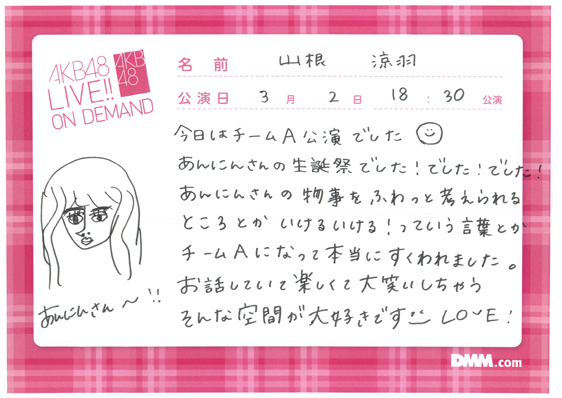 AKB48
LIVE!!
ON DEMAND
AKB
48
名 前 山根 涼羽
公演日 3 月 2 日 18 : 30 公演
今日はチームA公演でした
あんにんさんの生誕祭でした!でした!でした!
あんにんさんの物事をふわっと考えられる
ところとか いけるいける!っていう言葉とか
チームAになって本当にすくわれました。
お話していて楽しくて大笑いしちゃう
そんな空間が大好きです LOVE!
あんにんさん〜!!
DMM.com